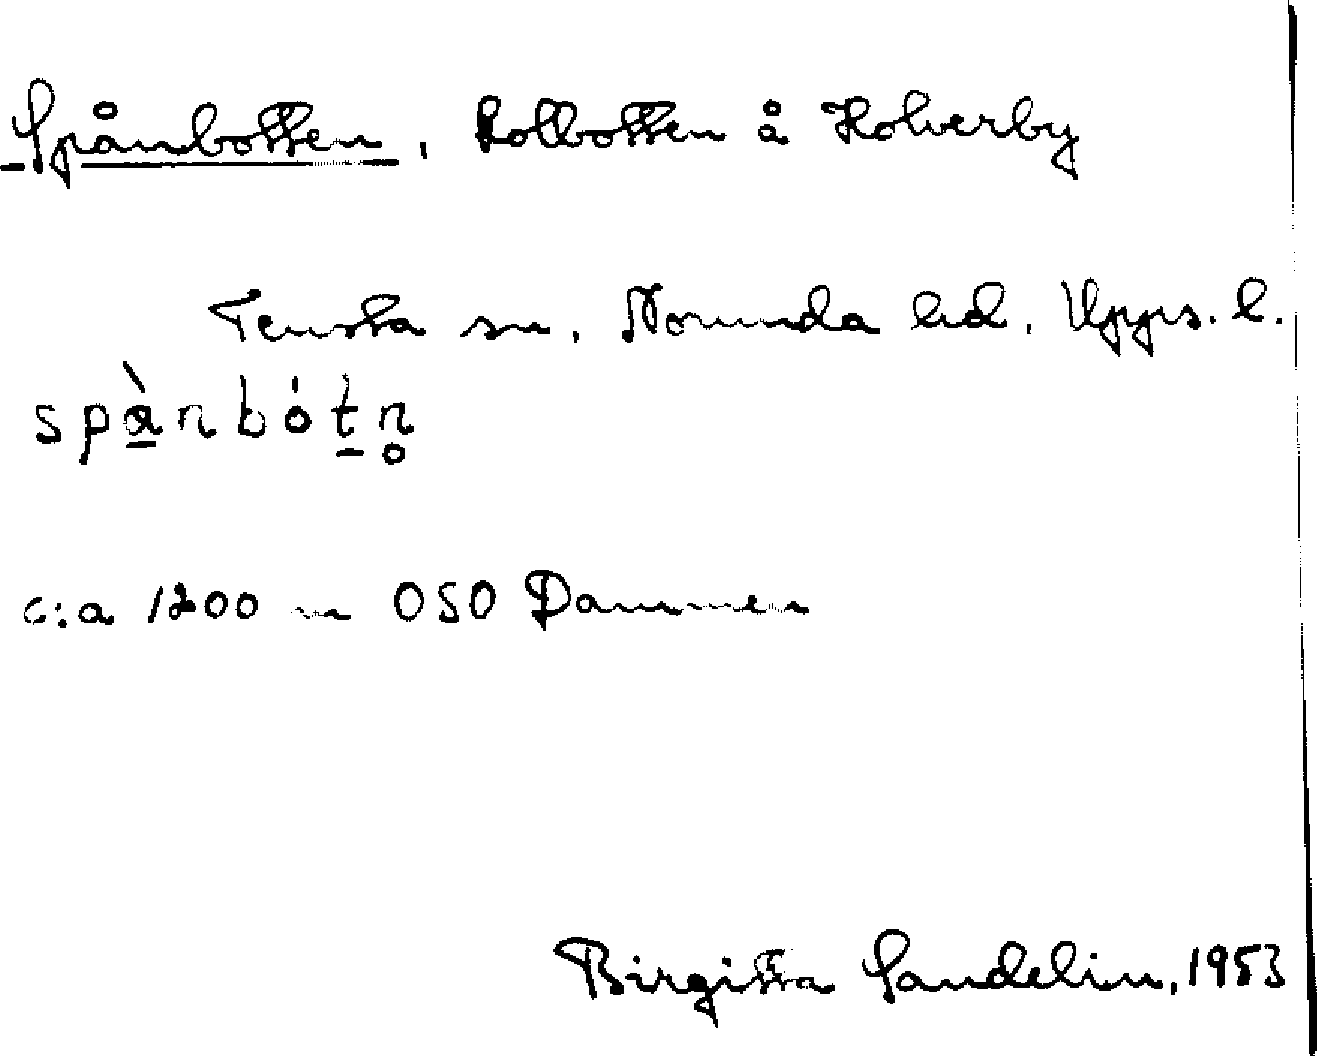 Spånbotten, kolbotten å Holverby
Tensta sn, Norunda hd, Upps. l.
spà̱nbót̠n̥
c:a 1200 m OSO Dammen
Birgitta Sandelin, 1953